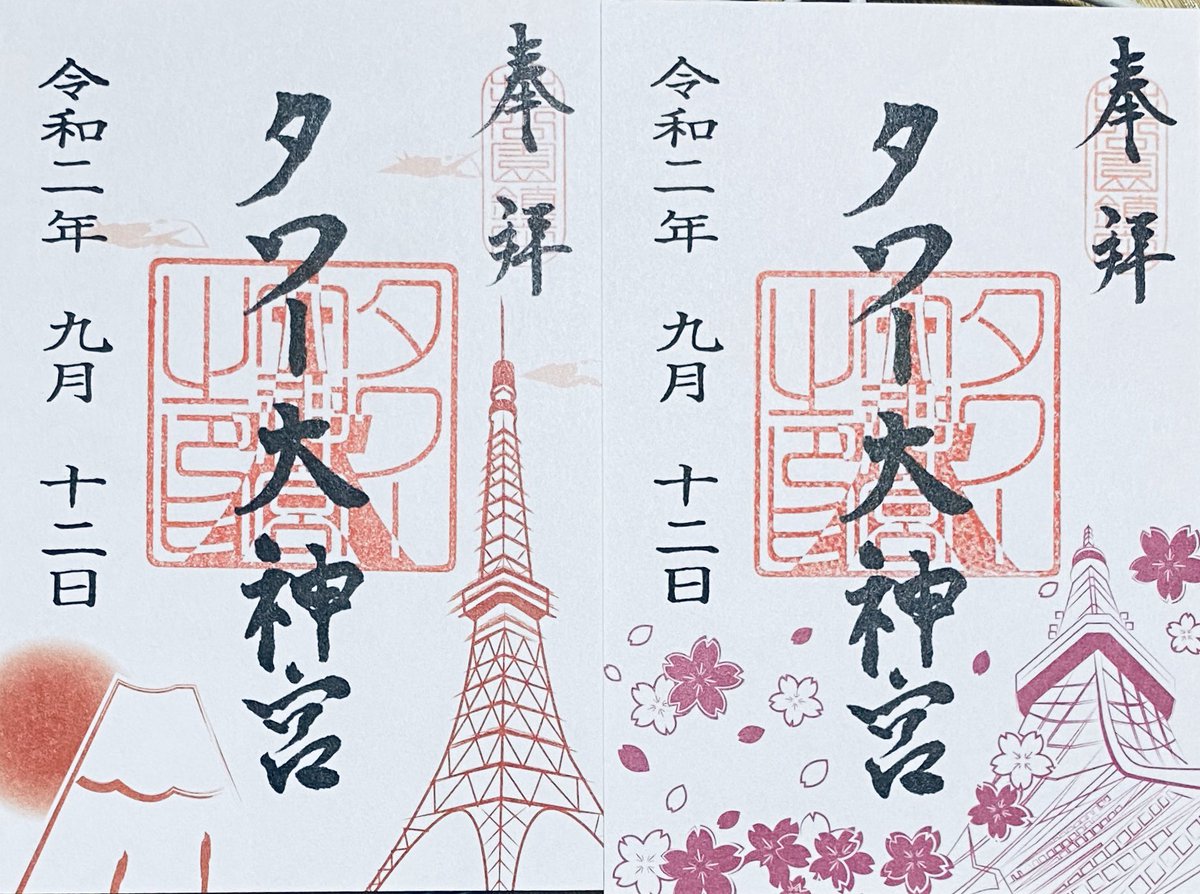 奉拝
タワー大神宮
令和二年 九月 十二日
奉拝
タワー大神宮
令和二年 九月 十二日